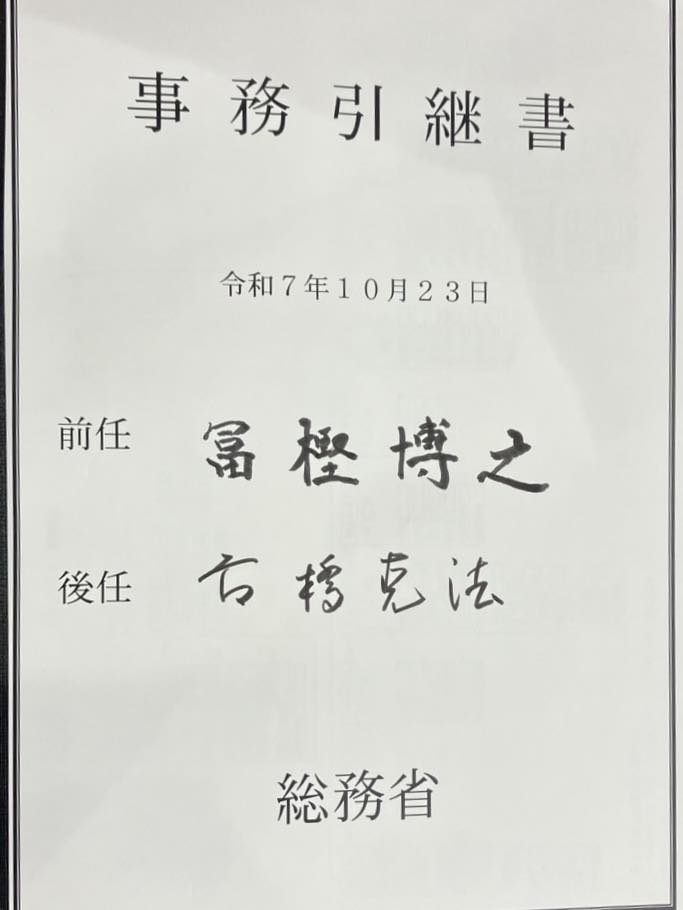 事務引継書
令和７年１０月２３日
前任 冨樫博之
後任 高橋克法
総務省